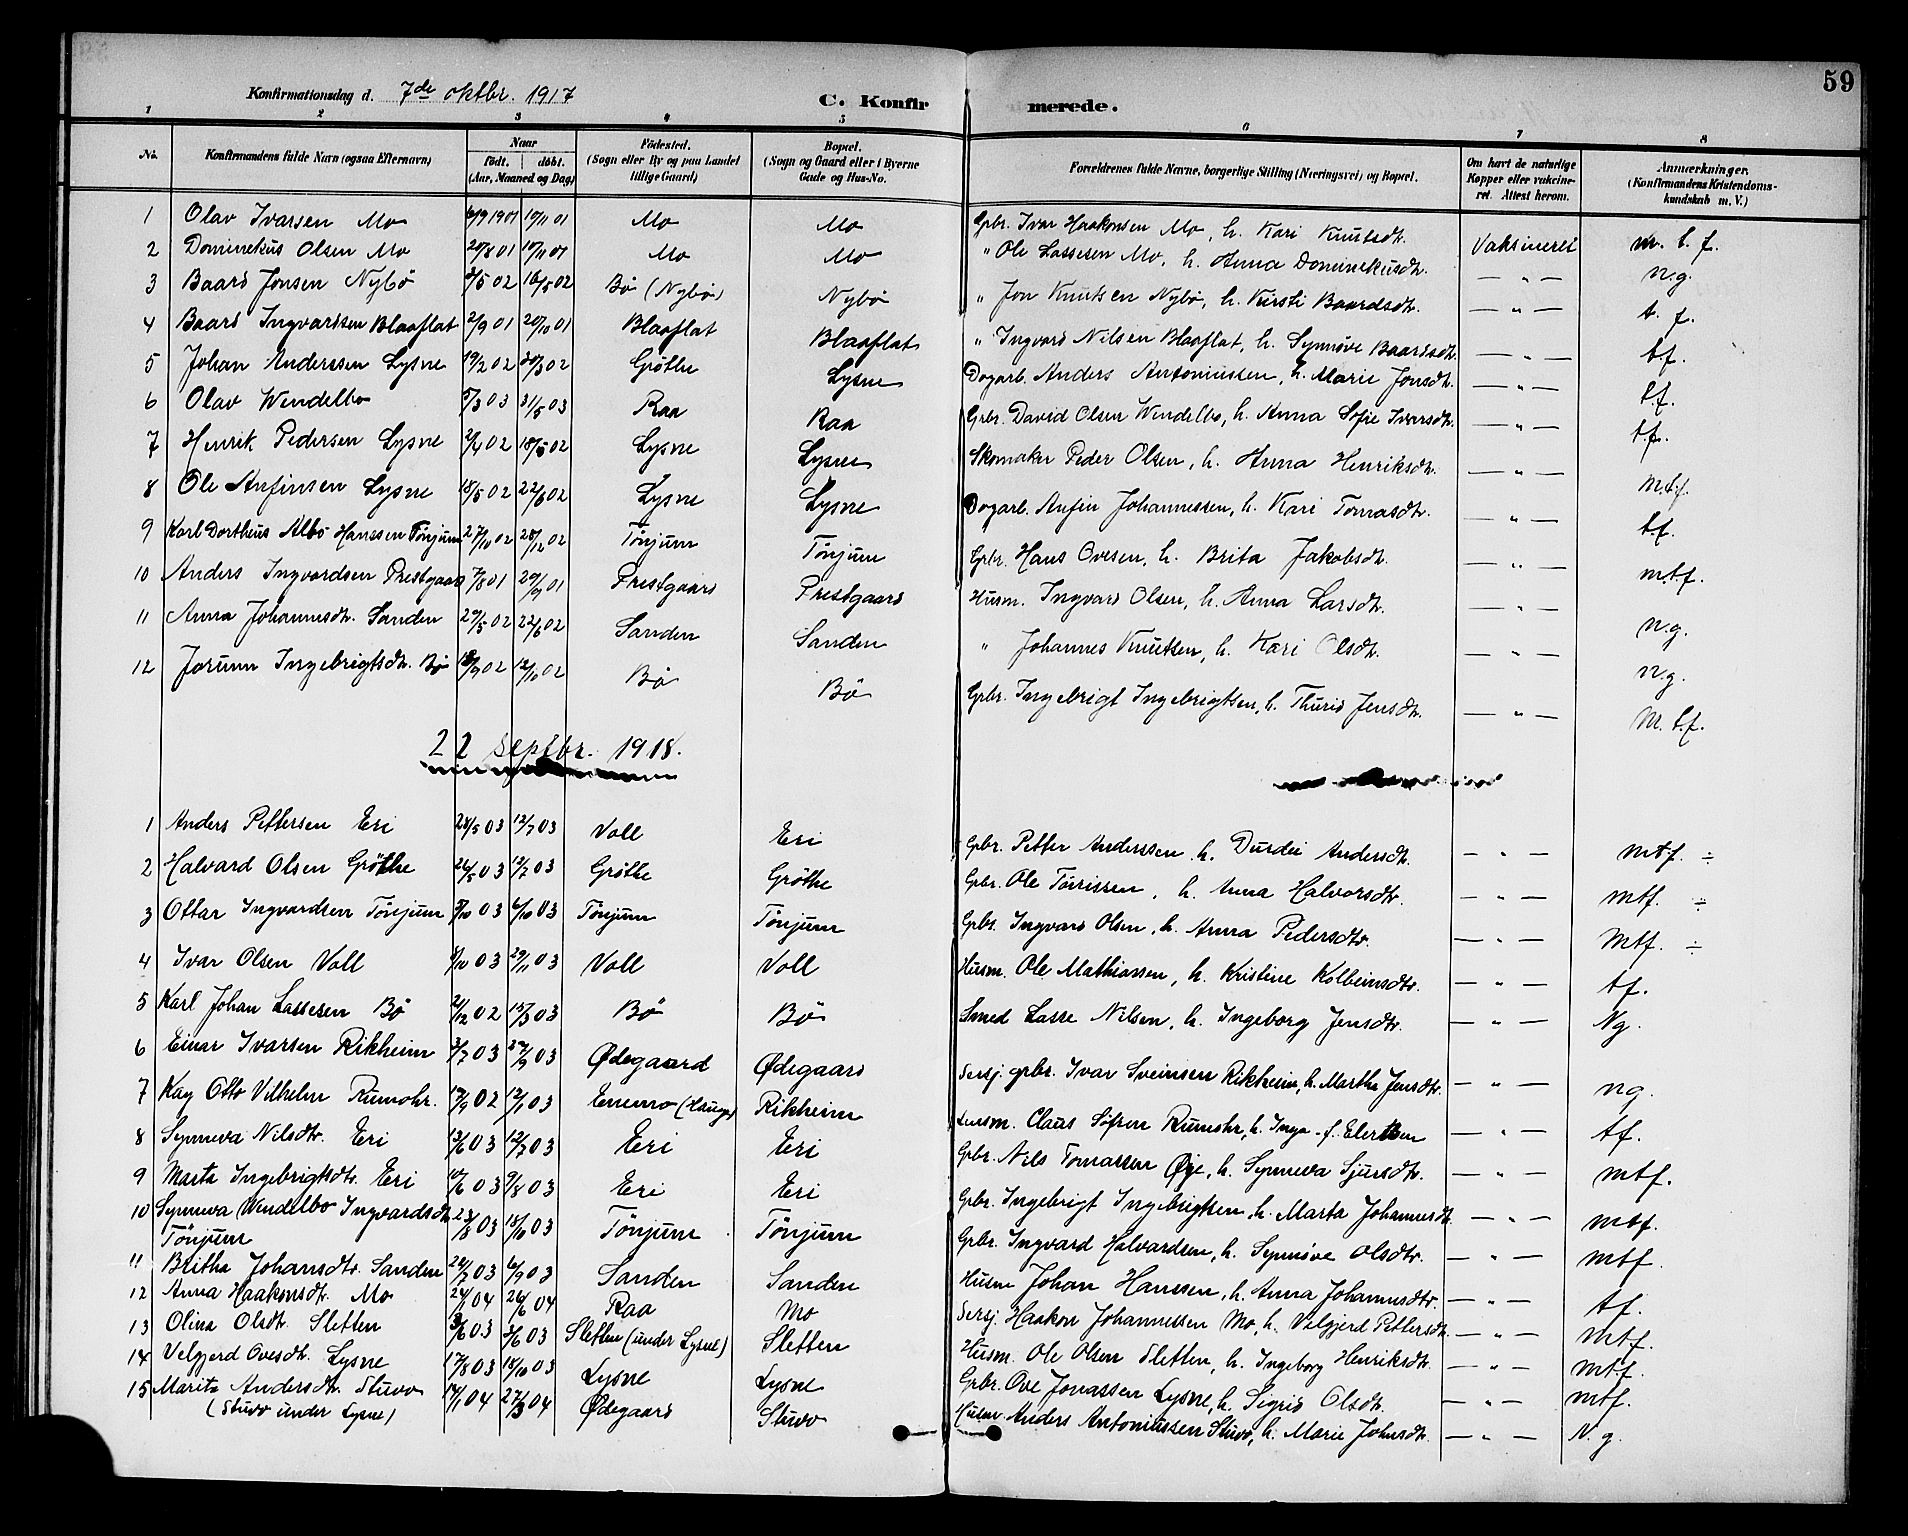 59
Konfirmationsdag d. 7de oktbr. 1917
C. Konfir merede.
1 2 3 4 5 6 7 8
No. Konfirmandens fulde Navn (ogsaa Efternavn) Naar født. døbt. (Aar, Maaned og Dag) Fødested. (Sogn eller By og paa Landet tillige Gaard) Bopæl. (Sogn og Gaard eller i Byerne Gade og Hus-No. Forældrenes fulde Navne, borgerlige Stilling (Næringsvei) og Bopæl. Om havt de naturlige Kopper eller vakcineret. Attest herom. Anmærkninger. (Konfirmandens Kristendomskundskab m. V.)
1 Olav Ivarsen Mo 6/9 1901 10/11 01 Mo Mo Gbr. Ivar Haakonsen Mo, h. Kari Knutsdtr. Vaksineret m. t. f.
2 Dominekus Olsen Mo 20/8 01 10/11 01 Mo Mo " Ole Lassesen Mo, h. Anna Dominekusdtr. — " — n.g.
3 Baard Jonsen Nybø 3/5 02 16/5 02 Bø (Nybø) Nybø " Jon Knutsen Nybø, h. Kirsti Baardsdtr. — " — t. f.
4 Baard Ingvardsen Blaaflat 2/9 01 20/10 01 Blaaflat Blaaflat " Ingvard Nilsen Blaaflat, h. Synnøve Baardsdtr. — " — tf.
5 Johan Anderssen Lysne 19/2 02 30/3 02 Grøthe Lysne Dagarb. Anders Antoniussen, h. Marie Jonsdtr. — " — t.f.
6 Olav Wendelbo 5/3 03 31/5 03 Raa Raa Gbr. David Olsen Wendelbo, h. Anna Sofie Ivarsdtr. — " — t.f.
7 Henrik Pedersen Lysne 2/4 02 18/5 02 Lysne Lysne Skomaker Peder Olsen, h. Anna Henriksdtr. — " — M.t.f.
8 Ole Anfinsen Lysne 18/5 02 22/6 02 Lysne Lysne Dagarb. Anfin Johannessen, h. Kari Tomasdtr. — " — t.f.
9 Karl Dortheus Albo Hanssen Tønjum 27/10 02 28/12 02 Tønjum Tønjum Gbr. Hans Ovesen, h. Brita Jakobsdtr. — " — mtf.
10 Anders Ingvardsen Prestgaard 7/8 01 29/9 01 Prestgaard Prestgaard Husm. Ingvard Olsen, h. Anna Larsdtr. — " — n.g.
11 Anna Johannesdtr. Sanden 29/5 02 22/6 02 Sanden Sanden " Johannes Knutsen, h. Kari Olsdtr. — " — n.g.
12 Jorunn Ingebrigtsdtr. Bø 18/9 02 12/10 02 Bø Bø Gbr. Ingebrigt Ingebrigtsen, h. Thurid Jensdtr. — " — M. t.f.
22 septbr. 1918.
1 Anders Pettersen Eri 28/5 03 12/7 03 Voll Eri Gbr. Petter Anderssen h. Durdei Andersdtr. — " — mtf. ÷
2 Halvard Olsen Grøthe 26/5 03 12/7 03 Grøthe Grøthe Gbr. Ole Tørrissen, h. Anna Halvorsdtr. — " — mtf. ÷
3 Ottar Ingvardsen Tønjum 3/10 03 6/10 03 Tønjum Tønjum Gbr. Ingvard Olsen, h. Anna Pedersdtr. — " — Mtf. ÷
4 Ivar Olsen Voll 8/10 03 29/11 03 Voll Voll Husm. Ole Mathiassen, h. Kristine Kolbeinsdtr. — " — tf.
5 Karl Johan Lassesen Bø 21/12 02 15/3 03 Bø Bø Smed Lasse Nilsen, h. Ingeborg Jensdtr. — " — Ng.
6 Einar Ivarsen Rikheim 3/7 03 27/9 03 Ødegaard Ødegaard Sersj. gbr. Ivar Sveinsen Rikheim, h. Martha Jensdtr. — " — ng.
7 Kay Otto Vilhelm Rumohr. 17/9 02 12/1 03 Enemo (Hauge) Rikheim Lensm. Claus Søfren Rumohr, h. Inga f. Elertsen — " — tf.
8 Synneva Nilsdtr. Eri 13/6 03 12/7 03 Eri Eri Gbr. Nils Tomassen Øye, h. Synneva Sjursdtr. — " — mtf.
9 Marta Ingebrigtsdtr. Eri 10/6 03 9/8 03 Eri Eri Gbr. Ingebrigt Ingebrigtsen, h. Marta Johannesdtr. — " — mtf.
10 Synneva Wendelbo Ingvardsdtr. 23/8 03 18/10 03 Tønjum Tønjum Gbr. Ingvard Halvardsen, h. Synnøve Olsdtr. — " — mtf
Tönjum
11 Britha Johansdtr. Sanden 28/7 03 6/9 03 Sanden Sanden Husm Johan Hanssen, h. Anna Johannesdtr. — " — tf.
12 Anna Haakonsdtr. Mo 24/1 04 26/6 04 Raa Mo Sersj. Haakon Johannessen Mo, h. Velgjerd Pettersdtr. — " — mtf.
13 Olina Olsdtr Sletten 3/6 03 3/6 03 Sletten (under Lysne) Sletten Husm. Ole Olsen Sletten, h. Ingeborg Henriksdtr. — " — mt.f.
14 Velgjerd Ovesdtr. Lysne 17/8 03 18/10 03 Lysne Lysne Gbr. Ove Jonassen Lysne, h. Sigrid Olsdtr. — " — mtf.
15 Marita Andersdtr. Stuvo 17/1 04 27/3 04 Ødegaard Stuvo Husm. Anders Antoniussen Stuvo, h. Marie Johnsdtr. — " — N. g.
(Stuvo under Lysne)